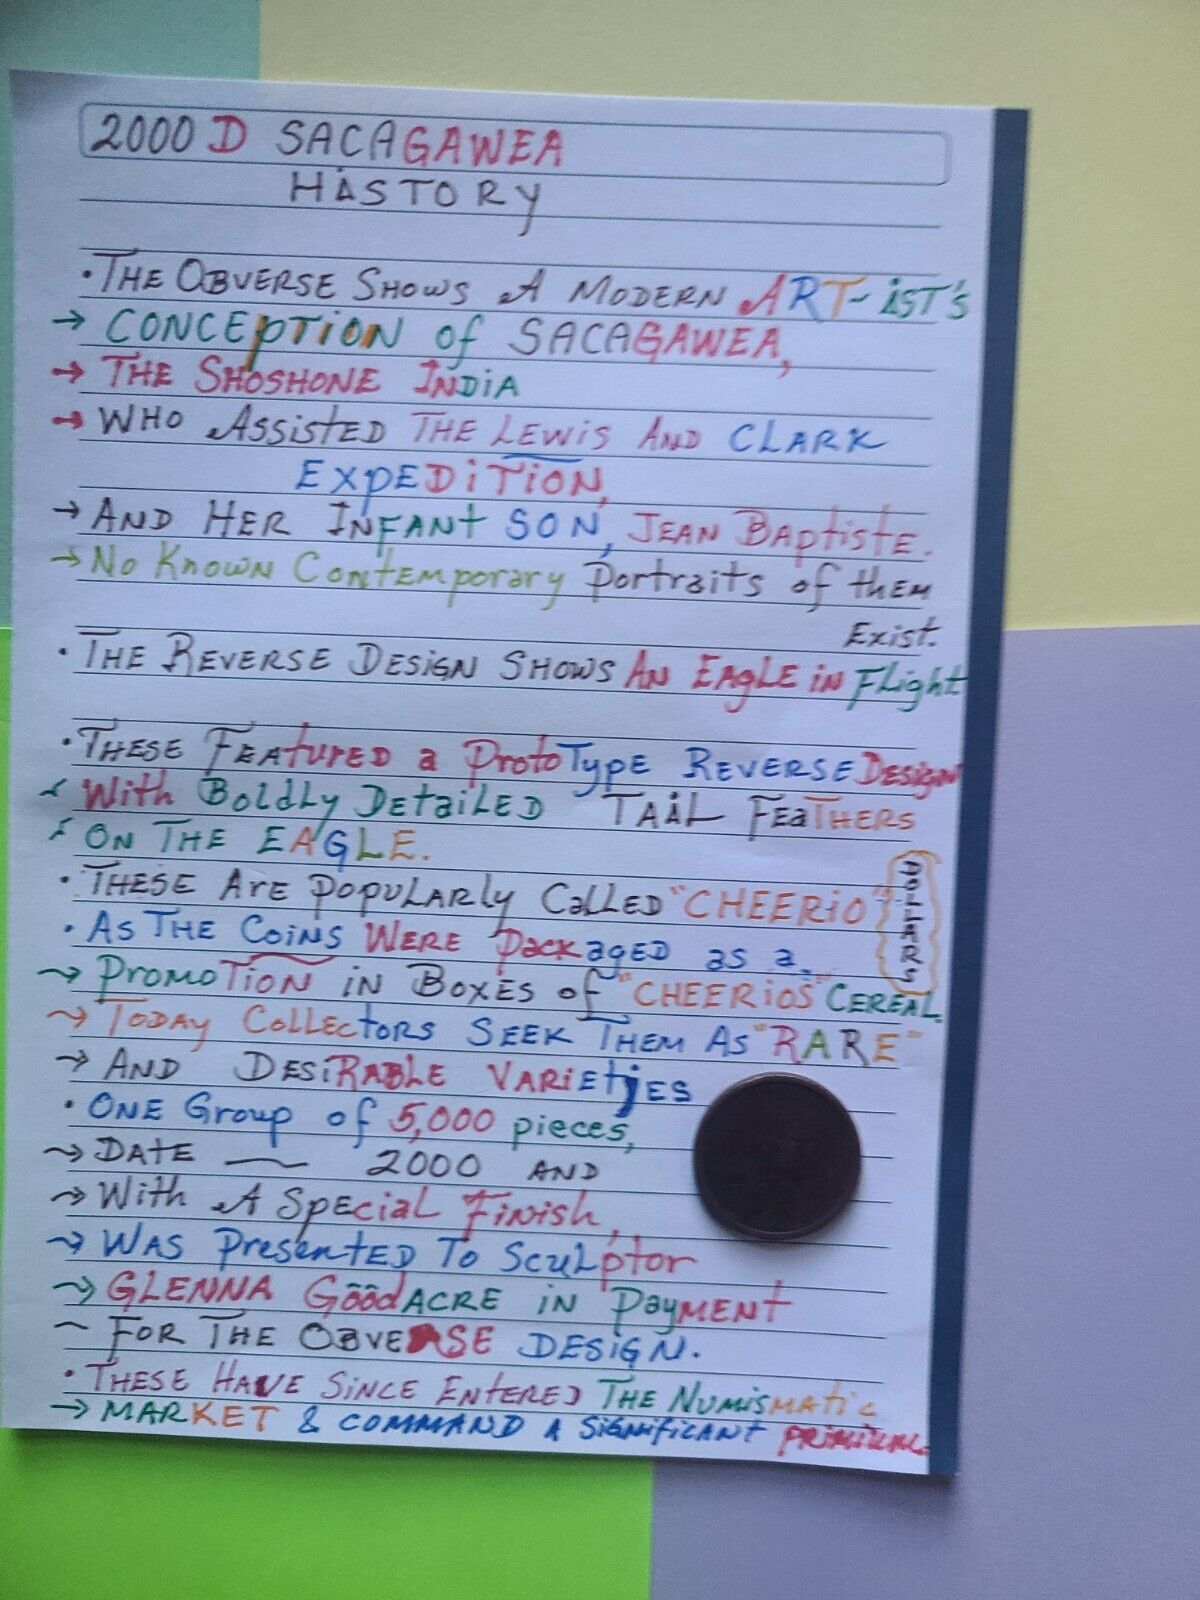 2000 D SACAGAWEA
HISTORY
• THE OBVERSE SHOWS A MODERN ART-IST'S
→ CONCEPTION of SACAGAWEA,
→ THE SHOSHONE INDIA
→ WHO ASSISTED THE LEWIS AND CLARK
EXPEDITION,
→ AND HER INFANT SON, JEAN BAptistE.
→ No Known Contemporary Portraits of them
Exist.
• THE REVERSE DESIGN SHOWS AN EAGLE in Flight
• THESE FEAtURED a ProtoType REVERSE Design
With Boldly DETAILED TAIL FEATHERS
ON THE EAGLE.
• THESE ARE POPULARLY CALLED "CHEERIO" DOLLARS
• AS THE COINS WERE PackAGED as a
→ PROMOTION IN BOXES of "CHEERIOS" CEREAL
→ TODAY COLLECTORS SEEK THEM AS "RARE"
→ AND DESIRABLE VARIETIES
• ONE Group of 5,000 pieces,
→ DATE — 2000 AND
→ With A SPEcial Finish,
→ WAS PresENTED To Sculptor
→ GLENNA GOODACRE IN PayMENT
~ FOR THE OBVERSE DESIGN.
• THESE HAVE SINCE ENTERED THE NUMISMATIC
→ MARKET & COMMAND A SIGNIFICANT